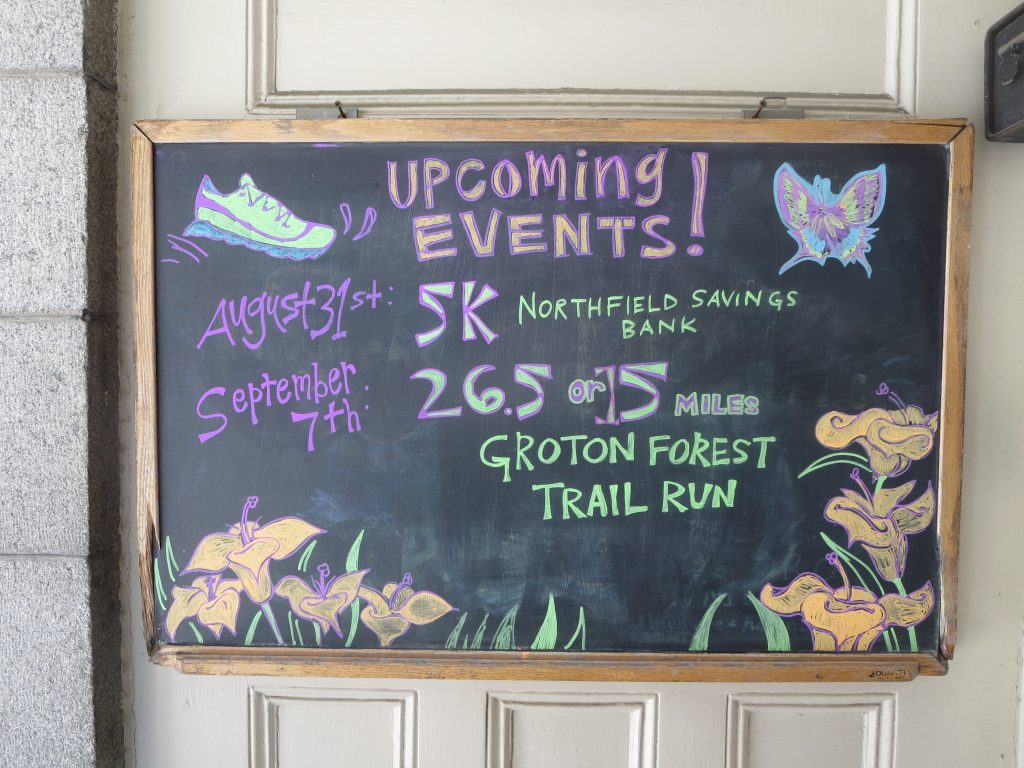 UPCOMING
EVENTS!
August 31st: 5K NORTHFIELD SAVINGS
BANK
September 7th: 26.5 or 15 MILES
GROTON FOREST
TRAIL RUN